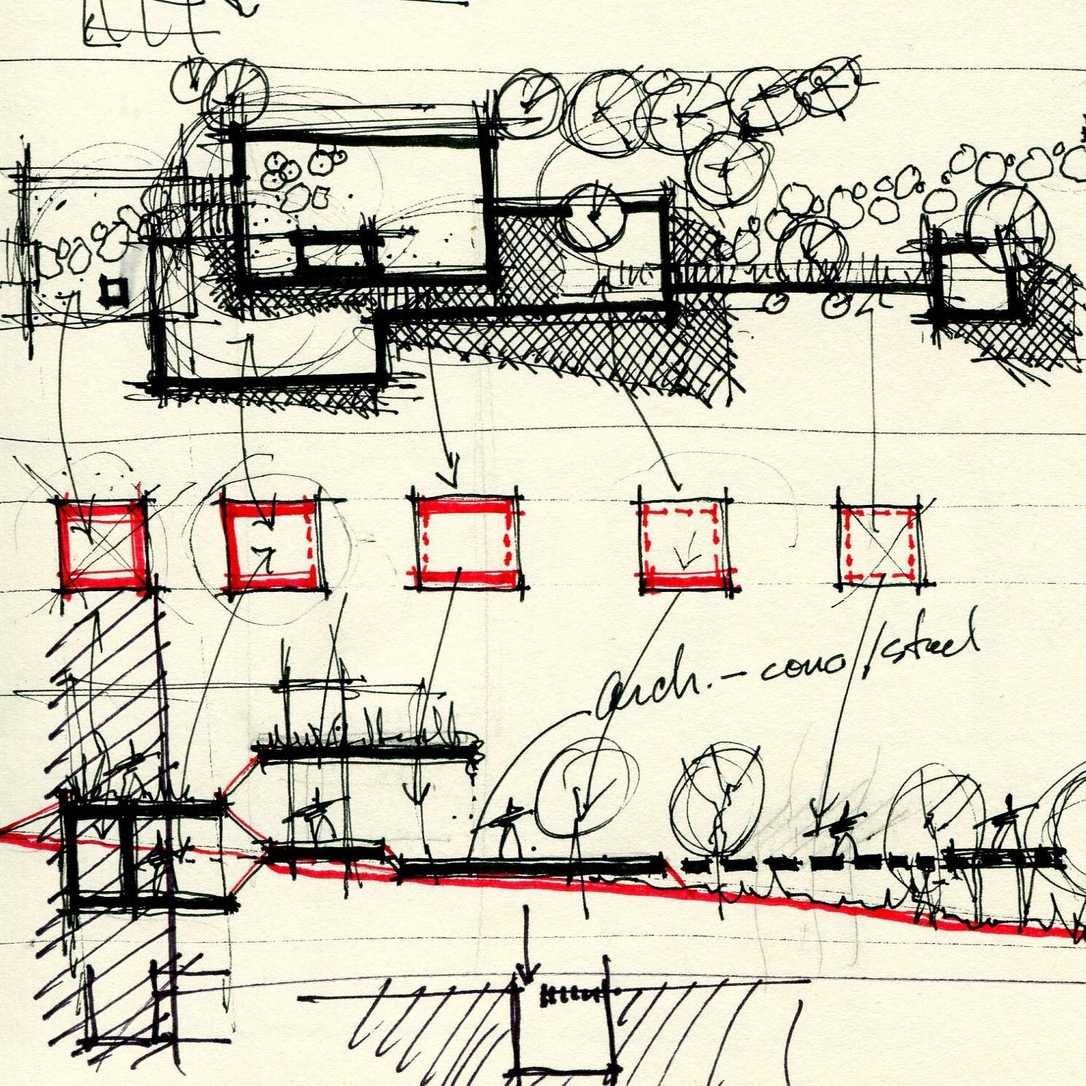 arch. - conc/steel